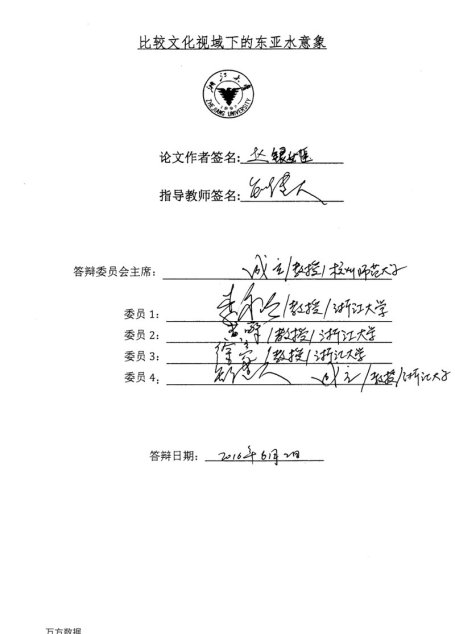 比较文化视域下的东亚水意象
浙江大学
1897
ZHEJIANG UNIVERSITY
论文作者签名:
指导教师签名:
答辩委员会主席: /教授/杭州师范大学
委员 1: /教授/浙江大学
委员 2: /教授/浙江大学
委员 3: /教授/浙江大学
委员 4: /教授/浙江大学
答辩日期: 2016年6月2日
万方数据